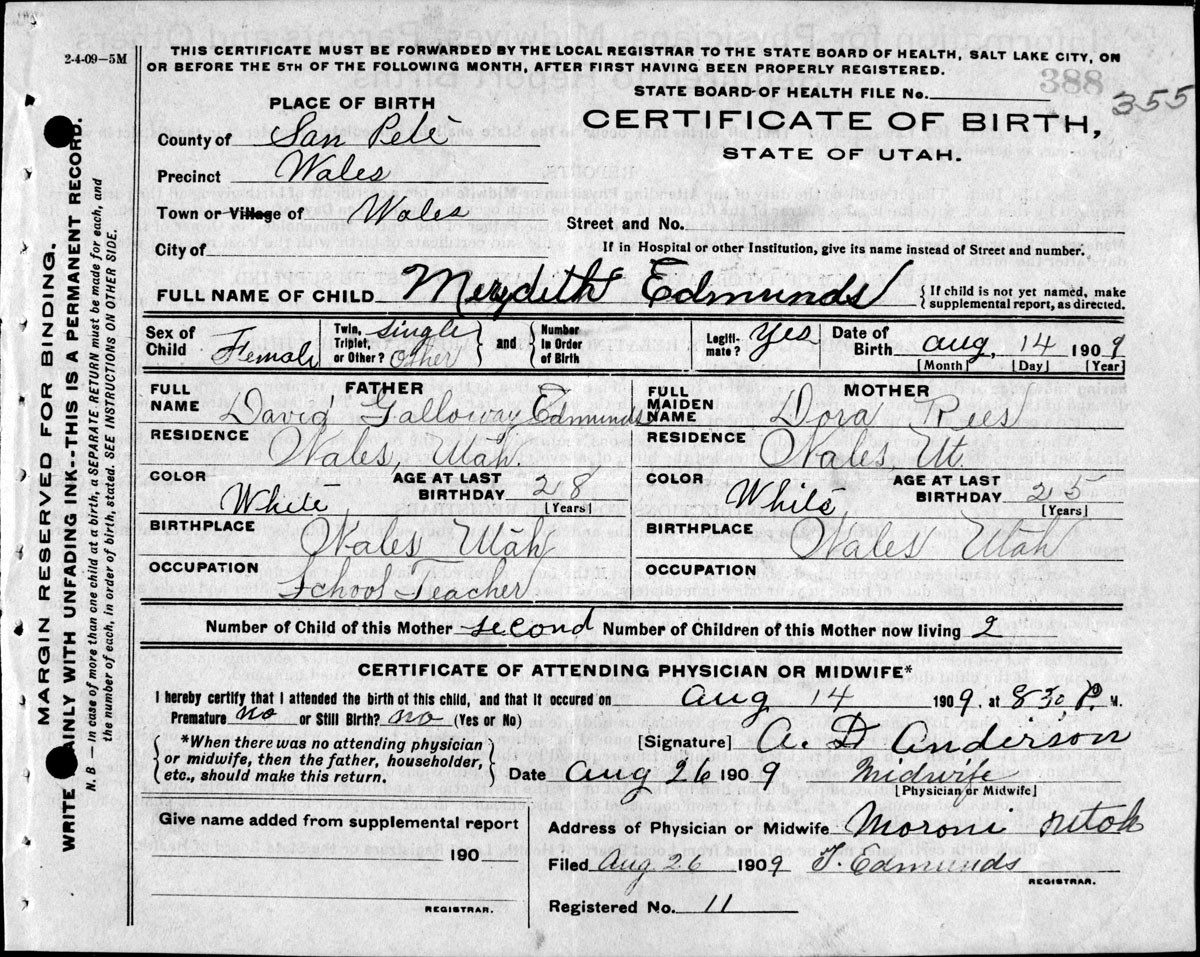 2-4-09—5M
THIS CERTIFICATE MUST BE FORWARDED BY THE LOCAL REGISTRAR TO THE STATE BOARD OF HEALTH, SALT LAKE CITY, ON
OR BEFORE THE 5TH OF THE FOLLOWING MONTH, AFTER FIRST HAVING BEEN PROPERLY REGISTERED.
388
STATE BOARD OF HEALTH FILE No. 355
PLACE OF BIRTH
CERTIFICATE OF BIRTH,
STATE OF UTAH.
County of San Pete
Precinct Wales
Town or Village of Wales
Street and No.
City of
If in Hospital or other Institution, give its name instead of Street and number.
FULL NAME OF CHILD Merydith Edmunds { If child is not yet named, make supplemental report, as directed.
Sex of Child Female Twin, Triplet, or Other? single Other } and { Number in Order of Birth Legitimate? Yes Date of Birth Aug. 14 1909
[Month] [Day] [Year]
FATHER
FULL NAME David Galloway Edmunds
RESIDENCE Wales, Utah.
COLOR White AGE AT LAST BIRTHDAY 28 [Years]
BIRTHPLACE Wales Utah
OCCUPATION School Teacher
MOTHER
FULL MAIDEN NAME Dora Rees
RESIDENCE Wales, Ut.
COLOR White AGE AT LAST BIRTHDAY 25 [Years]
BIRTHPLACE Wales Utah
OCCUPATION
Number of Child of this Mother second Number of Children of this Mother now living 2
CERTIFICATE OF ATTENDING PHYSICIAN OR MIDWIFE*
I hereby certify that I attended the birth of this child, and that it occured on Aug 14 1909. at 8 30 P. M.
Premature no or Still Birth? no (Yes or No)
{ *When there was no attending physician
or midwife, then the father, householder,
etc., should make this return. }
[Signature] A. D Anderson
Date Aug 26 1909 Midwife
[Physician or Midwife]
Give name added from supplemental report
190
REGISTRAR.
Address of Physician or Midwife Moroni Utah
Filed Aug 26 1909 T. Edmunds
REGISTRAR.
Registered No. 11
MARGIN RESERVED FOR BINDING.
WRITE AINLY WITH UNFADING INK--THIS IS A PERMANENT RECORD.
N. B.—In case of more than one child at a birth, a SEPARATE RETURN must be made for each, and
the number of each, in order of birth, stated. SEE INSTRUCTIONS ON OTHER SIDE.